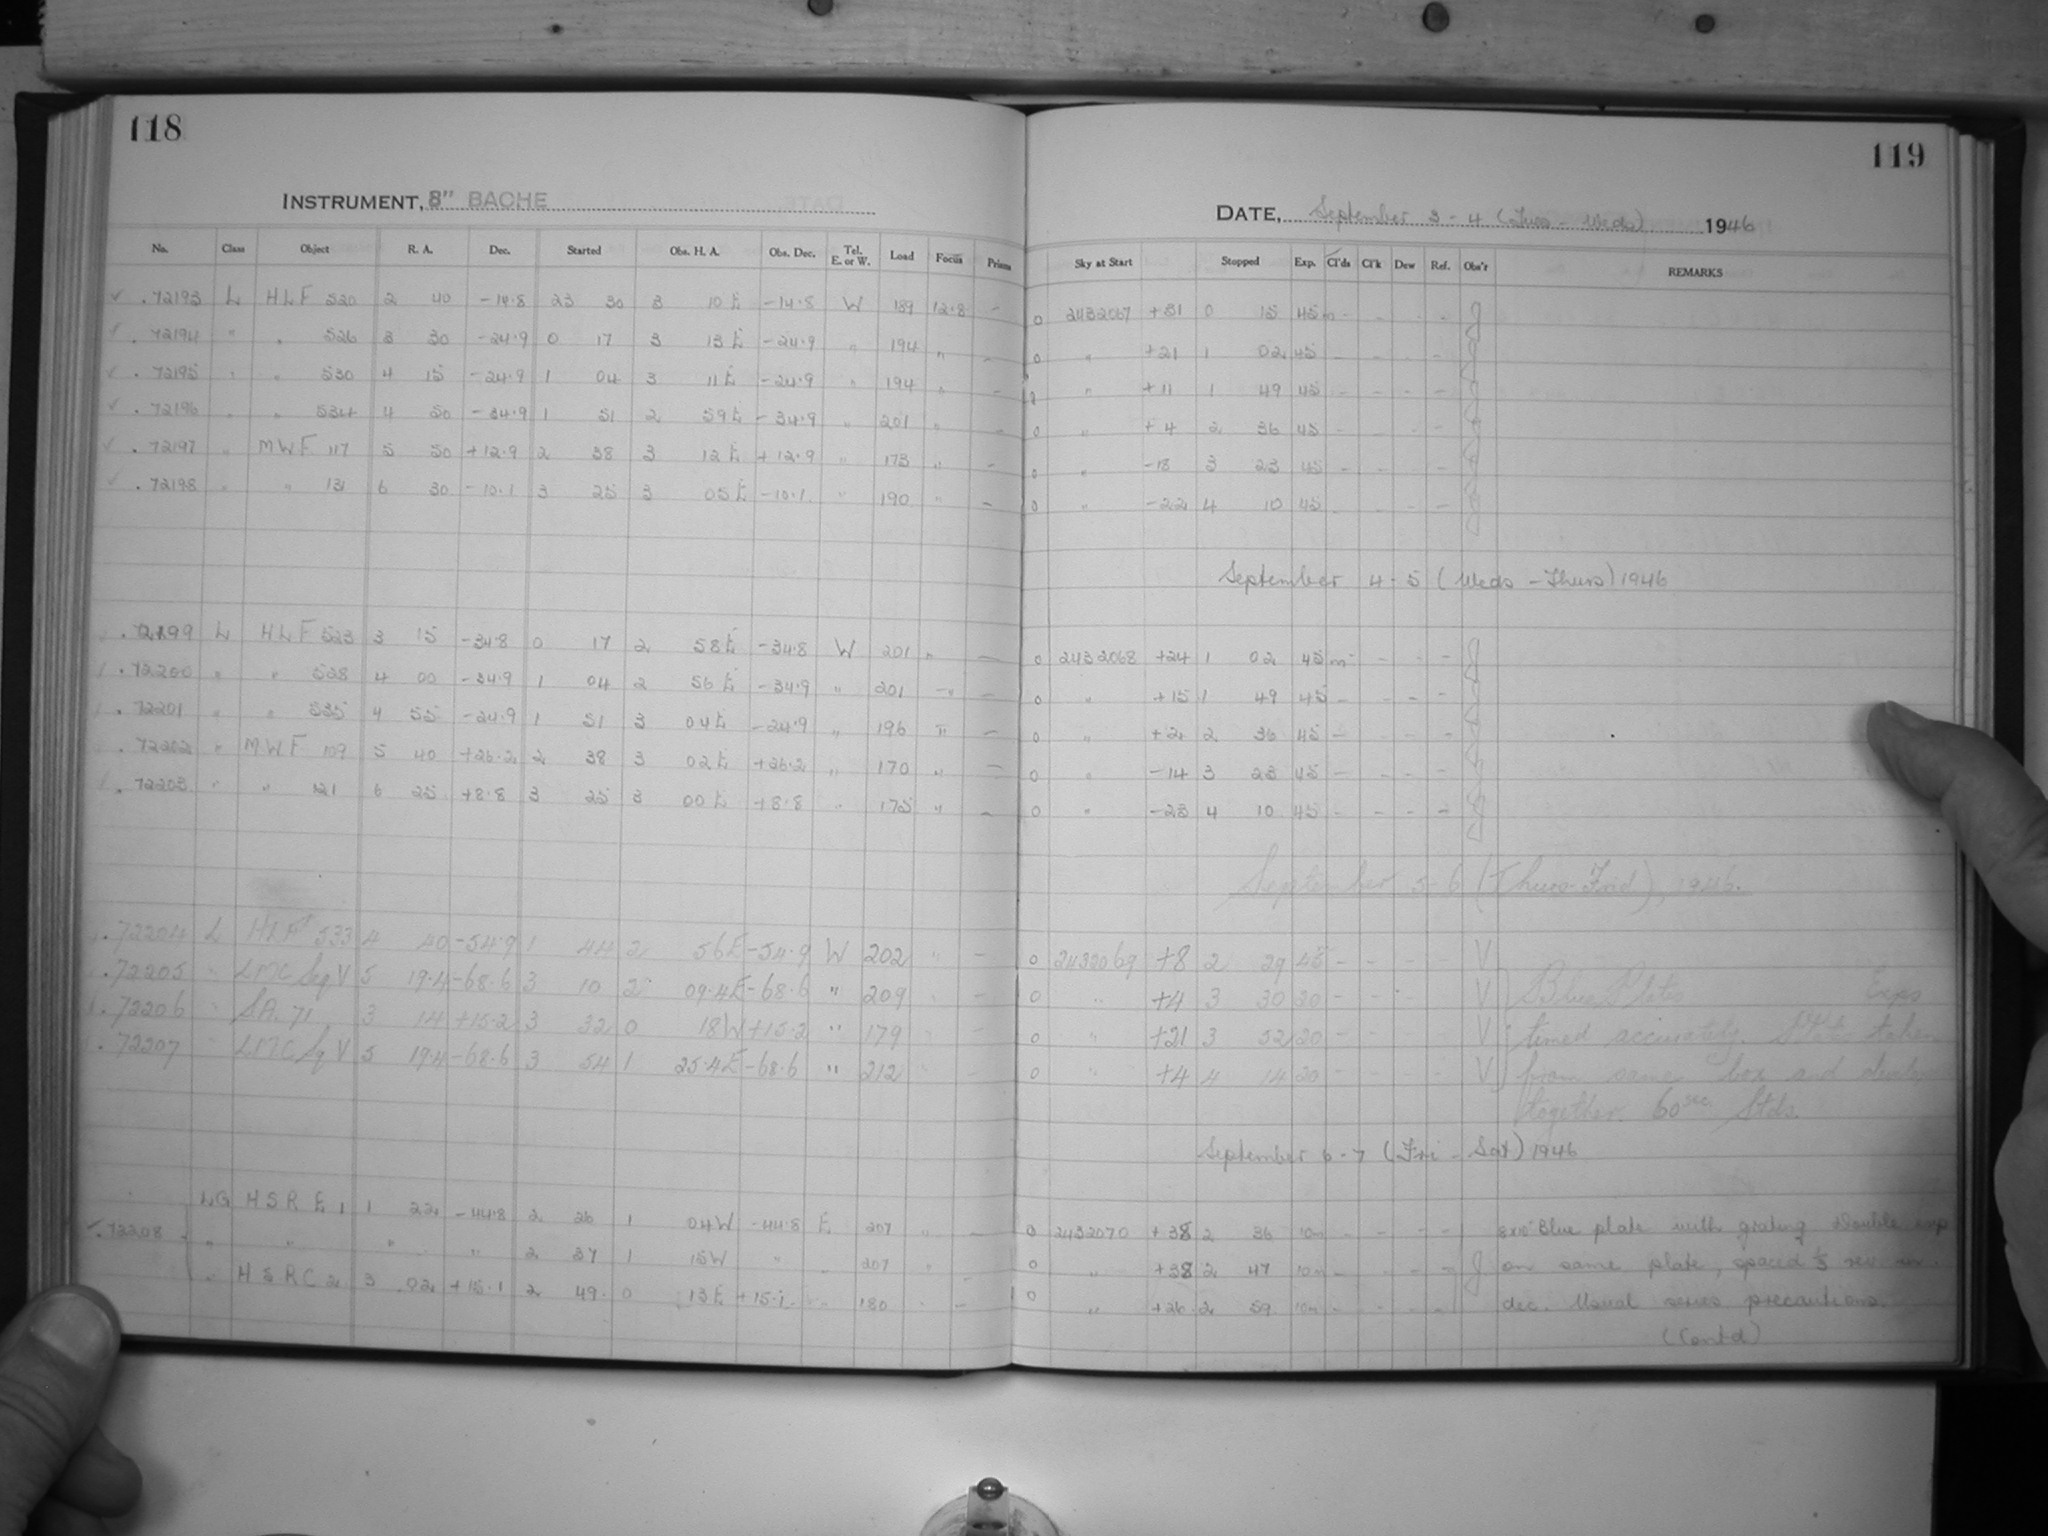 118
INSTRUMENT, 8" BACHE
No. Class Object R. A. Dec. Started Obs. H. A. Obs. Dec. Tel. E. or W. Load Focus Prism
.72193 L HLF 520 2 40 -14.8 23 30 3 10 E -14.8 W 189 12.8 -
.72194 " " 526 3 30 -24.9 0 17 3 13 E -24.9 " 194 " -
.72195 " " 530 4 15 -24.9 1 04 3 11 E -24.9 " 194 " -
.72196 " " 534 4 50 -34.9 1 51 2 59 E -34.9 " 201 " -
.72197 " MWF 117 5 50 +12.9 2 38 3 12 E +12.9 " 173 " -
.72198 " " 131 6 30 -10.1 3 25 3 05 E -10.1 " 190 " -
.72199 L HLF 523 3 15 -34.8 0 17 2 58 E -34.8 W 201 " -
.72200 " " 528 4 00 -34.9 1 04 2 56 E -34.9 " 201 " -
.72201 " " 535 4 55 -24.9 1 51 3 04 E -24.9 " 196 " -
.72202 " MWF 109 5 40 +26.2 2 38 3 02 E +26.2 " 170 " -
.72203 " " 121 6 25 +8.8 3 25 3 00 E +8.8 " 175 " -
.72204 L HLF 533 4 40 -54.9 1 44 2 56 E -54.9 W 202 " -
.72205 " LMC Sq V 5 19.4 -68.6 3 10 2 09.4 E -68.6 " 209 " -
.72206 " SA. 71 3 14 +15.2 3 32 0 18 W +15.2 " 179 " -
.72207 " LMC Sq V 5 19.4 -68.6 3 54 1 25.4 E -68.6 " 212 " -
LG HSR E 1 1 22 -44.8 2 26 1 04 W -44.8 E 207 " -
.72208 " " " " 2 37 1 15 W " " 207 "
" HSR C 2 3 02 +15.1 2 49 0 13 E +15.1 " 180 " -
119
DATE, September 3 - 4 (Tues - Weds) 1946
Sky at Start Stopped Exp. Cl'ds Cl'k Dew Ref. Obs'r REMARKS
0 2432067 +31 0 15 45m - - - - J
0 " +21 1 02 45 - - - -
0 " +11 1 49 45 - - - -
0 " +4 2 36 45 - - - -
0 " -18 3 23 45 - - - -
0 " -22 4 10 45 - - - -
September 4 - 5 (Weds - Thurs) 1946
0 2432068 +24 1 02 45m - - - J
0 " +15 1 49 45 - - - -
0 " +2 2 36 45 - - - -
0 " -14 3 23 45 - - - -
0 " -23 4 10 45 - - - -
September 5-6 (Thurs-Frid), 1946.
0 2432069 +8 2 29 45 - - - - V
0 " +4 3 30 20 - - - - V Blue Plates Exps
0 " +21 3 52 20 - - - - V timed accurately. Plates taken
0 " +4 4 14 20 - - - - V from same box and
together. 60 sec. Stds.
September 6-7 (Fri - Sat) 1946
0 2432070 +38 2 36 10m - - - - 8x10" Blue plate with grating double exp
0 " +38 2 47 10m - - - - J on same plate, spaced
0 " +26 2 59 10m - - - - dec. Usual series precautions.
(Contd)